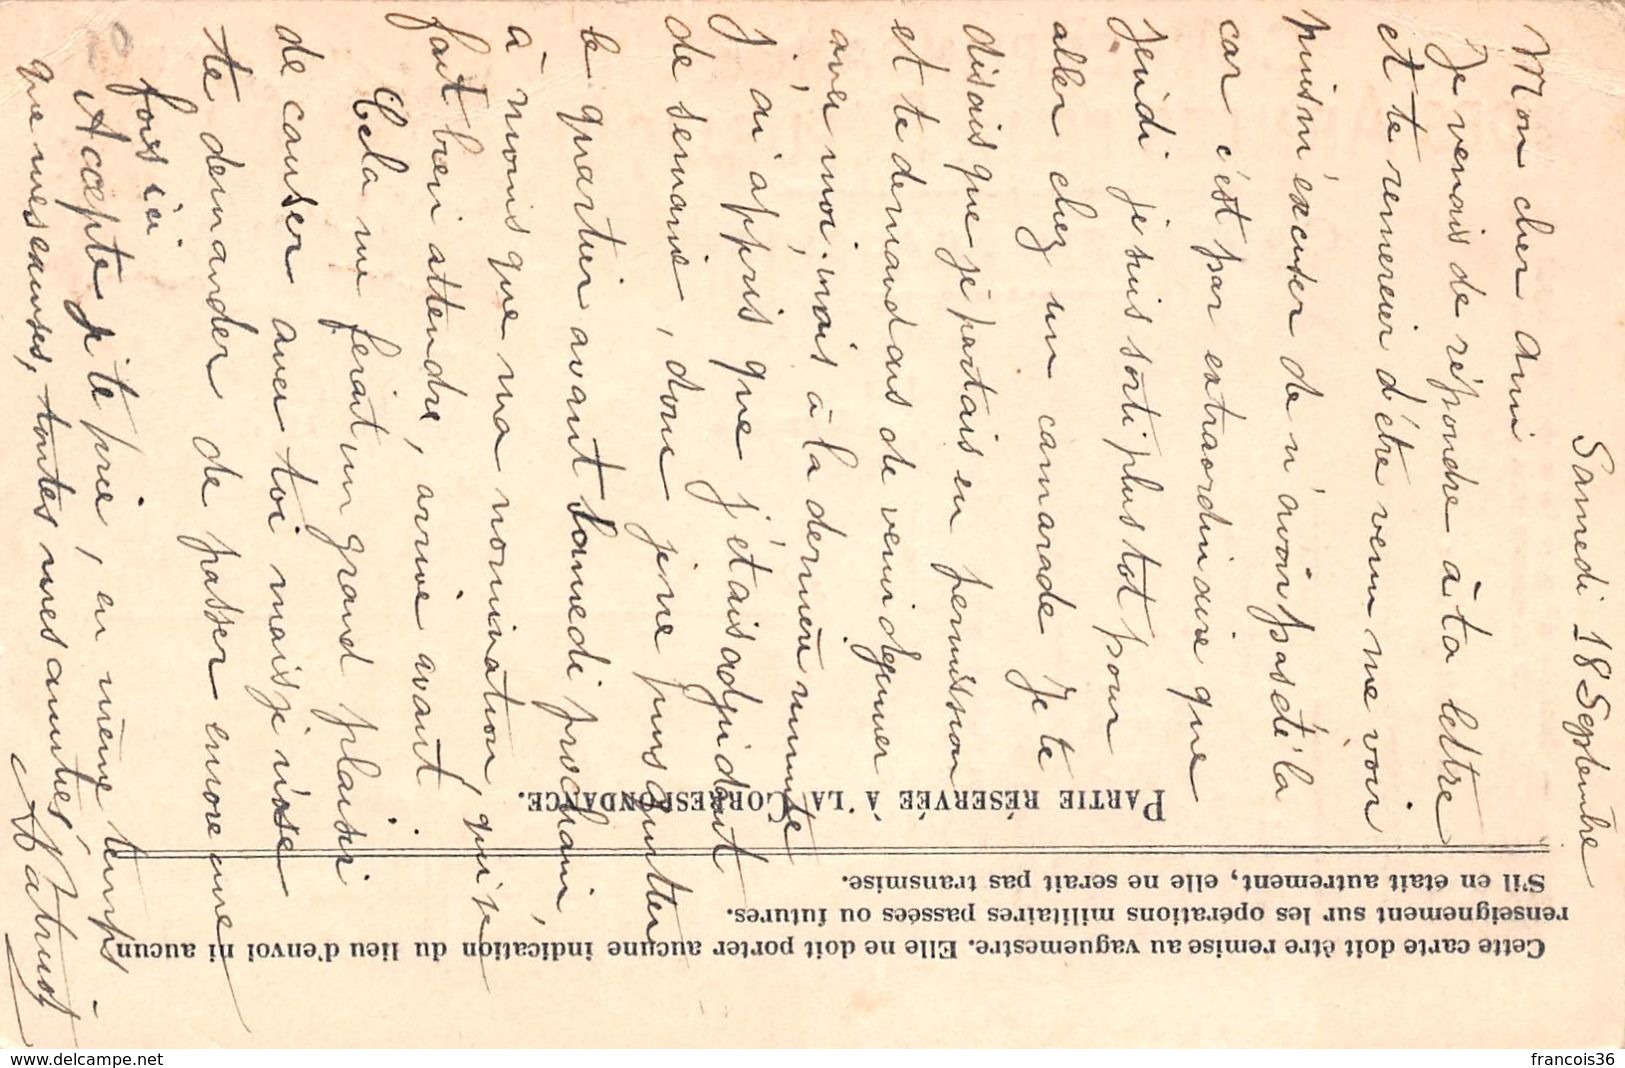 Samedi 18 Septembre
Mon cher Ami
Je venais de répondre à ta lettre
et te remercier d'être venu me voir
puis m'éxcuser de n'avoir pas été là
car c'est par extraordinaire que
jeudi je suis sorti plus tot pour
aller chez un camarade Je te
disais que je partais en permission
et te demandais de venir dejeuner
avec moi, mais à la dernière minute
j'ai appris que j'étais adjudant
de semaine, donc je ne puis quitter
le quartier avant Samedi prochain,
à moins que ma nomination, qui se
fait bien attendre, arrive avant.
Cela me ferait un grand plaisir
de causer avec toi mais je n'ose
te demander de passer encore une
fois ici
Accepte je te prie, en même temps
que mes excuses, toutes mes amitiés
PARTIE RÉSERVÉE A LA CORRESPONDANCE.
Cette carte doit être remise au vaguemestre. Elle ne doit porter aucune indication du lieu d'envoi ni aucun
renseignement sur les opérations militaires passées ou futures.
S'il en était autrement, elle ne serait pas transmise.
www.delcampe.net
francois36